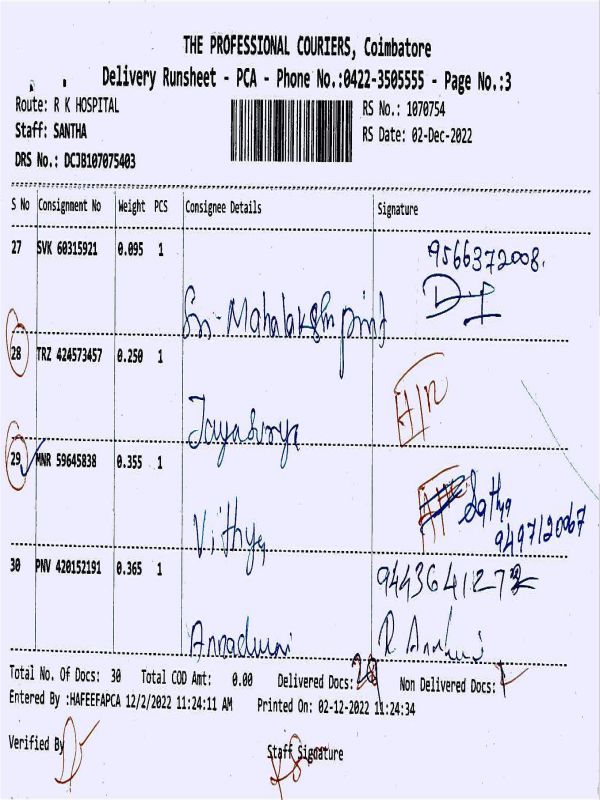 THE PROFESSIONAL COURIERS, Coimbatore
Delivery Runsheet - PCA - Phone No.:0422-3505555 - Page No.:3
Route: R K HOSPITAL RS No.: 1070754
Staff: SANTHA RS Date: 02-Dec-2022
DRS No.: DCJB107075403
S No Consignment No Weight PCS Consignee Details Signature
27 SVK 60315921 0.095 1 9566372008.
Sri-Mahalakshmi print
28 TRZ 424573457 0.250 1
Jayasurya
29 MNR 59645838 0.355 1 Sathya
Vithya 9497120067
30 PNV 420152191 0.365 1
Annadurai
Total No. Of Docs: 30 Total COD Amt: 0.00 Delivered Docs: Non Delivered Docs:
Entered By :HAFEEFAPCA 12/2/2022 11:24:11 AM Printed On: 02-12-2022 11:24:34
Verified By Staff Signature